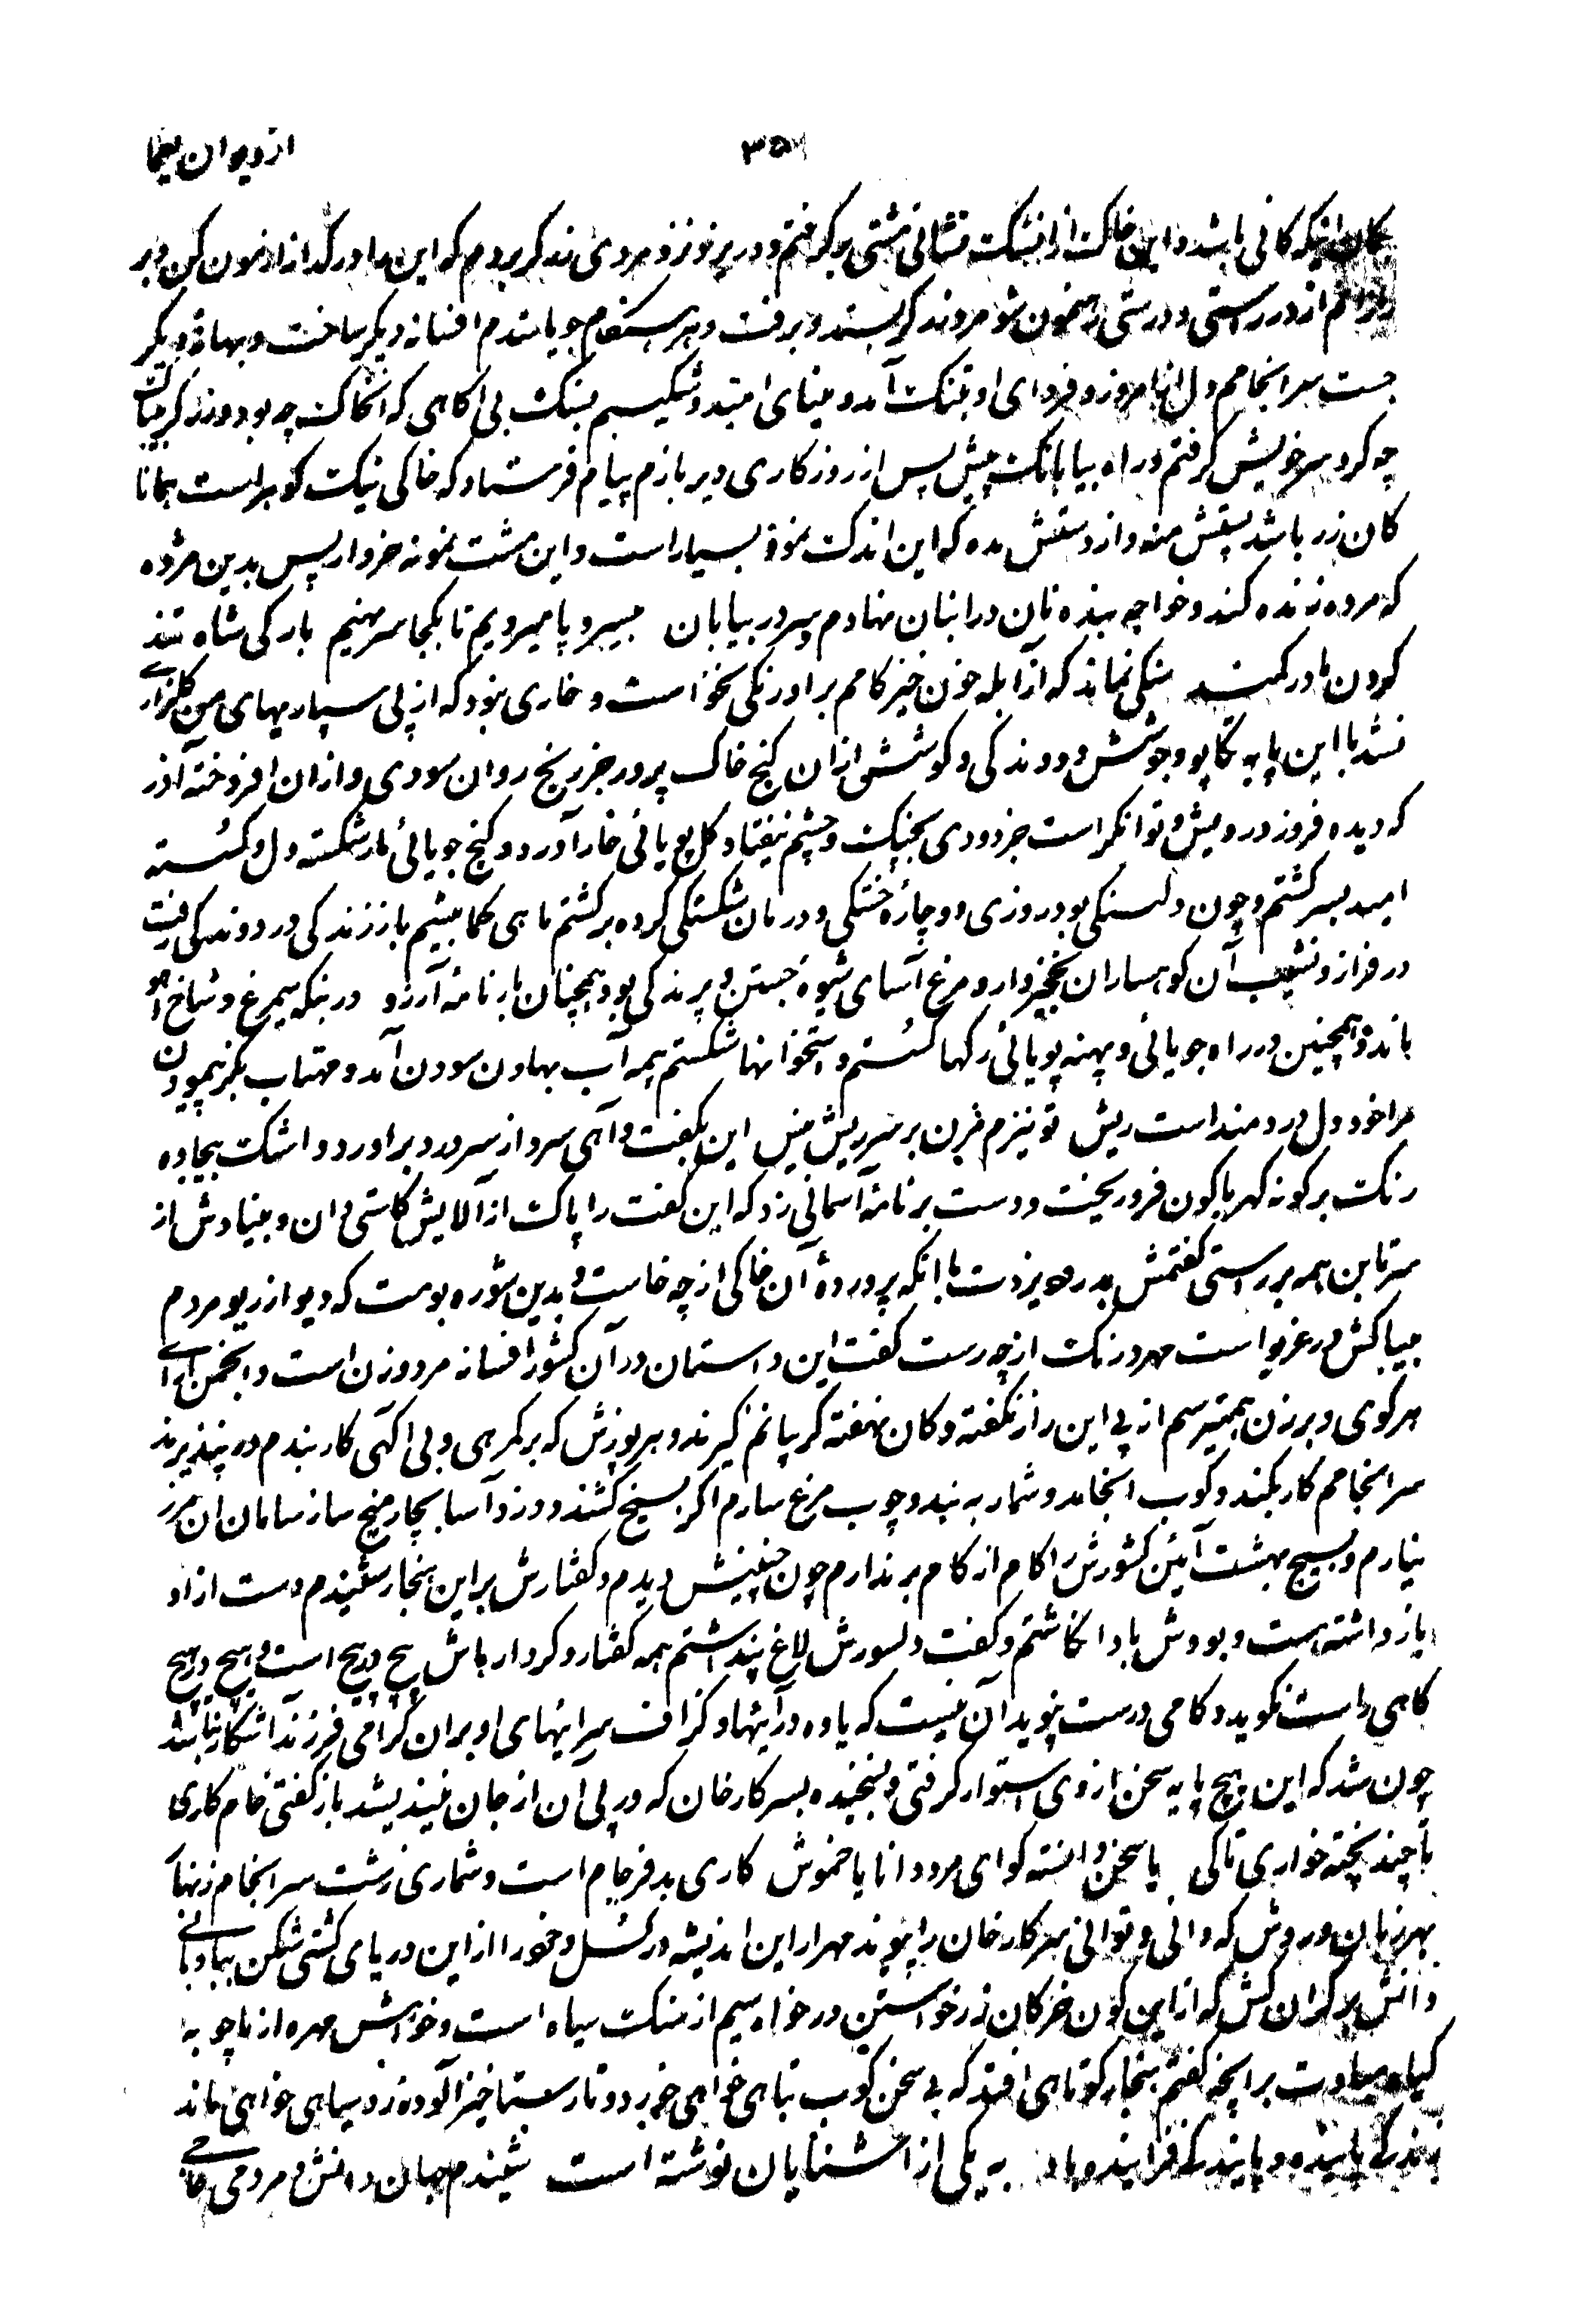 از دیوان یغما
کان اینکه کانی باشد و این خاک ازان سنک نشانی مشتی بر کرفتم و در پر نو نرزو مردی زند کر بردم که این را در کداز ازمون کن و بر
از در راستی و درستی رهنمون شو مرد زند کر بستد و برفت و هر هنکام جویا شدم افسانه دیکر ساخت و بهانهٔ دیکر
جست سرانجامم دل از امروز و فردای او بتنک آمد و مینای امید و شکیبم بسنک بی اکاهی که انخاک چه بود و زند کر بیباک
چه کرد سر خویش کرفتم و راه بیابانک پیش پس از روزکاری دیر بازم پیام فرستاد که خاکی نیک کوهر است همانا
کان زر باشد پستش منه و از دستش مده که این اندک نمونهٔ بسیار است و این مشت نمونه خروار پس بدین مژده
که مرده زنده کند و خواجه بنده نان در انبان نهادم و سر در بیابان میسرو پا میرویم تا بکجا سر نهیم بارکی شاه تند
کردن ما در کمند سنکی نماند که از آبله خون خیز کامم براو رنکی نخواست و خاری نبود که از پی سپاریهای من کلزاری
نشد با این پایه تکاپو و جوشش و دوندکی و کوشش ازان کنج خاک پرور جز رنج روان سودی و ازان افروخته آذر
که دیده فروز درویش و توانکر است جز دودی بچنک و چشم نیفتاد کل پویائی خار آورد و کنج جویائی مار شکسته دل و کسسته
امید بسر کشتم و چون دلسنکی بود روزی دو چارهٔ خستکی و درمان شکستکی کرده برکشتم ماهی کما بیشم باز زندکی در دوندکی رفت
در فراز و نشیب آن کوهساران نخجیر وار و مرغ آسای شیوهٔ جستن و پرندکی بود همچنان بار نامهٔ آرزو در بنکه سیمرغ و شاخ آهو
باند و همچنین در راه جویائی و پهنه پویائی رکها کسستم و استخوانها شکستم همه آب بهاون سودن آمد و مهتاب بکز پیمودن
مرا خود دل دردمند است ریش تو نیزم مزن بر سر ریش نیش این بکفت و آهی سرد از سر درد براورد و اشک بیجاده
رنک بر کونه کهربا کون فرو ریخت و دست بر نامهٔ آسمانی زد که این کفت را پاک از آلایش کاستی دان و بنیادش از
سر تا بن همه بر راستی کفتمش بدر هویزدت با انکه پروردهٔ آن خاکی از چه خاست و بدین شوره بومت که دیو از ریو مردم
بیباکش در غریو است مهر درنک از چه رست کفت این داستان در آن کشور افسانه مرد و زن است و انجمن آرای
هر کوی و برزن همیترسم از پی این راز نکفته و کان نهفته کریبانم کیرند و هر پوزش که بر کمرهی و بی آکهی کار بندم در نپذیرند
سرانجامم کار بکند و کوب انجامد و شمار به بند و چوب مرغ سارم اکر بسیخ کشند و دزد آسا بچار میخ ساز سامان ان مرز
نیارم و بسیج بهشت آئین کشورش را کام از کام برندارم چون چنینش دیدم و کفتارش بر این هنجار شنیدم دست از او
باز داشته هست و بودش باد انکاشتم و کفت دلسوزش لاغ پنداشتم همه کفتار و کردارباش پیچ در پیچ است و هیچ در هیچ
کاهی راست نکوید و کامی درست نپوید آن نیست که یاوه درآئیها و کزاف سرائیهای او بران کرامی فرزند اشکار نباشد
چون شد که این هیچ پایه سخن از وی استوار کرفتی و نسنجیده بسرکار خان که در پی آن از جان نیندیشد باز کفتی خام کاری
تا چند پخته خواری تا کی یا سخن دانسته کو ای مرد دانا یا خموش کاری بد فرجام است و شماری زشت سرانجام زنهار
بهر زبان و روش که دانی و توانی سرکار خان را پیوند مهر از این اندیشه در کسل و خود را از این دریای کشتی شکن بباد بانی
دانش بر کران کش که از این کون خر کان زر خواستن در خواه سیم از سنک سیاه است و خواهش مهره از مار چوبه
کیاه میبادت بر انچه کفتم هنجار کوتاهی افتد که بی سخن کوب تباهی خواهی خورد و تا رستاخیز آلوده زرد سیاهی خواهی ماند
زندکی پاینده و پایندکی فزاینده باد به یکی از آشنایان نوشته است شنیدم جهان دانش و مردمی